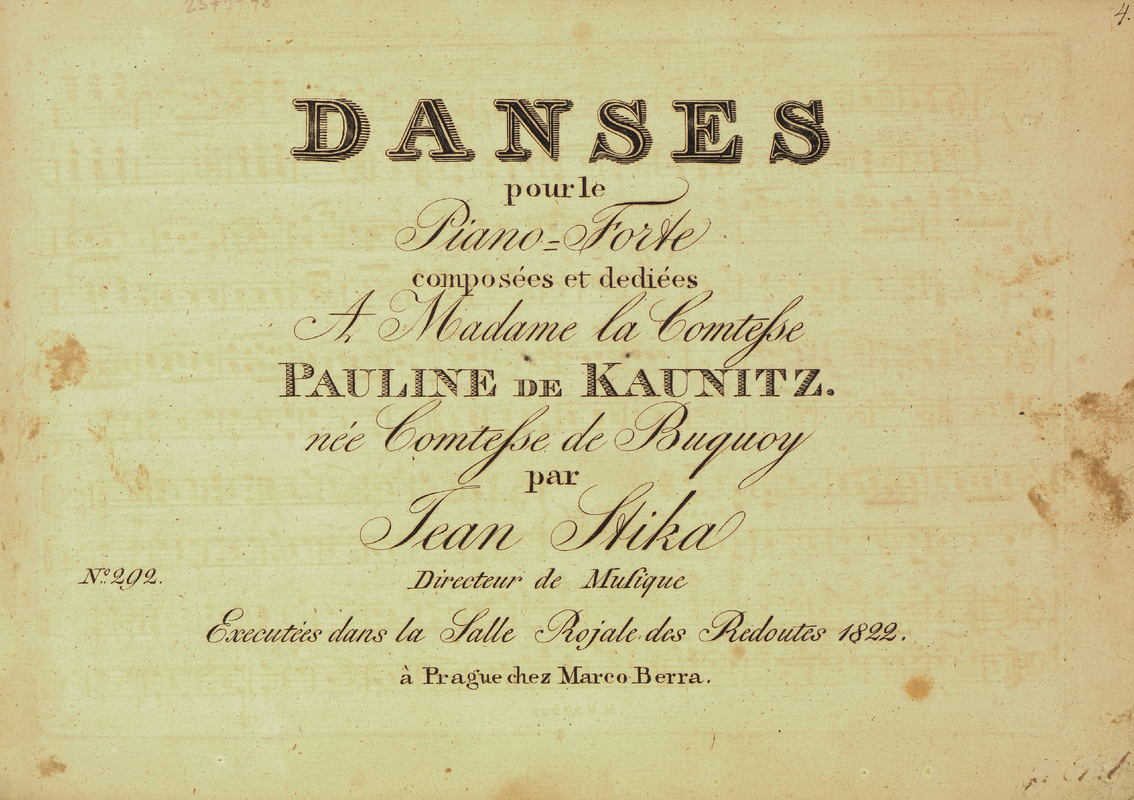 4.
DANSES
pour le
Piano=Forte
composées et dediées
A Madame la Comteſse
PAULINE DE KAUNITZ.
née Comteſse de Buquoy
par
Jean Stika
Nº 292.
Directeur de Muſique
Executées dans la Salle Rojale des Redoutes 1822.
à Prague chez Marco Berra.